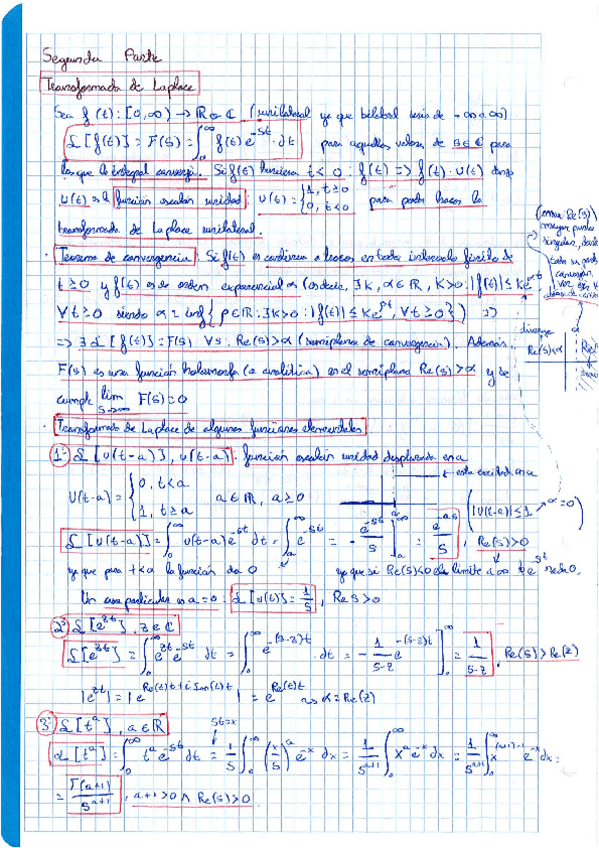 Segunda Parte
Transformada de Laplace
Sea f(t): [0,∞) → R o C (unilateral ya que bilateral sería de -∞ a ∞)
L[f(t)] = F(s) = ∫₀^∞ f(t) e^{-st} · dt para aquellos valores de s ∈ C para
los que la integral converja. Si f(t) t < 0 : f(t) => f(t) · u(t) donde
u(t) es la función escalón unidad: u(t) = { 1, t ≥ 0 ; 0, t < 0 para poder hacer la
transformada de Laplace unilateral.
· Teorema de convergencia: Si f(t) es continua a trozos en todo intervalo finito de
t ≥ 0 y f(t) es de orden exponencial α (es decir, ∃ K, α ∈ R, K > 0 : |f(t)| ≤ K e^{αt}
∀ t ≥ 0 siendo α = inf { ρ ∈ R : ∃ K > 0 : |f(t)| ≤ K e^{ρt}, ∀ t ≥ 0 } ) =>
=> ∃ L[f(t)] = F(s) ∀ s : Re(s) > α (semiplano de convergencia). Además,
F(s) es una función holomorfa (o analítica) en el semiplano Re(s) > α y se
cumple lim_{s→∞} F(s) = 0
diverge
Re(s) < α
α
· Transformada de Laplace de algunas funciones elementales
1º L[u(t-a)], u(t-a): función escalón unidad desplazada en a
u(t-a) = { 0, t < a ; 1, t ≥ a a ∈ R, a ≥ 0
esta escalón en a
( |u(t-a)| ≤ 1 → α = 0 )
L[u(t-a)] = ∫₀^∞ u(t-a) e^{-st} dt = ∫ₐ^∞ e^{-st} = - e^{-st}/s ]ₐ^∞ = e^{-as}/s, Re(s) > 0
ya que para t < a la función da 0 ya que si Re(s) < 0 el límite a ∞ de e^{-st} no da 0.
Un caso particular es a = 0 : L[u(t)] = 1/s, Re s > 0
2º L[e^{zt}], z ∈ C
L[e^{zt}] = ∫₀^∞ e^{zt} e^{-st} dt = ∫₀^∞ e^{-(s-z)t} · dt = - 1/(s-z) e^{-(s-z)t} ]₀^∞ = 1/(s-z), Re(s) > Re(z)
|e^{zt}| = |e^{Re(z)t + i Im(z)t}| = e^{Re(z)t} ⇝ α = Re(z)
3º L[t^a], a ∈ R
st = x
L[t^a] = ∫₀^∞ t^a e^{-st} dt = 1/s ∫₀^∞ (x/s)^a e^{-x} dx = 1/s^{a+1} ∫₀^∞ x^a e^{-x} dx = 1/s^{a+1} ∫₀^∞ x^{(a+1)-1} e^{-x} dx =
= Γ(a+1)/s^{a+1}, a+1 > 0 ∧ Re(s) > 0